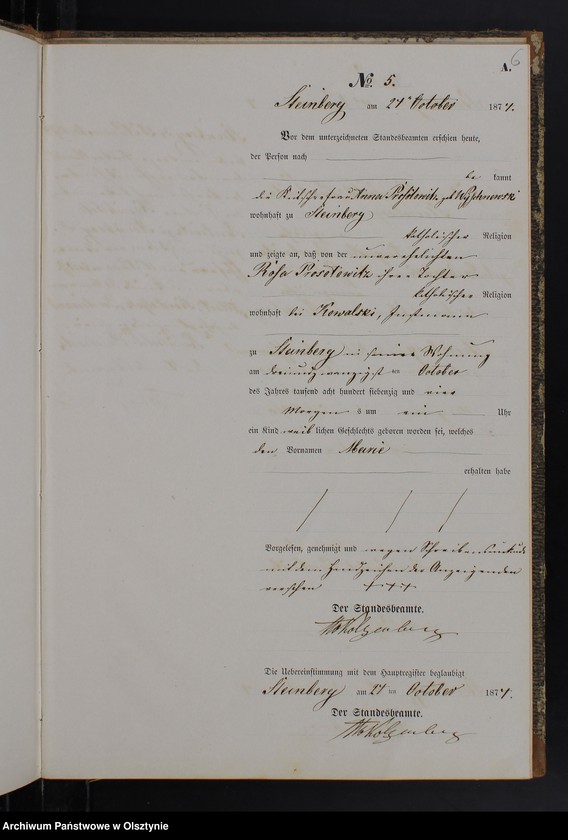 A. 6
No. 5.
Steinberg am 27ten October 1874.
Vor dem unterzeichneten Standesbeamten erschien heute,
der Person nach
be kannt
die Anna geb.
wohnhaft zu Steinberg
katholischer Religion
und zeigte an, daß von der unverehelichten
Rosa Prosotowitz ihrer Tochter
katholischer Religion
wohnhaft bei Kowalski, Instmann
zu Steinberg in seiner Wohnung
am dreiundzwanzigsten October
des Jahres tausend acht hundert siebenzig und vier
Morgens um ein Uhr
ein Kind weiblichen Geschlechts geboren worden sei, welches
den Vornamen Marie
erhalten habe
Vorgelesen, genehmigt und wegen Schreibensunkunde
mit dem Handzeichen der Anzeigenden
versehen +++
Der Standesbeamte.
Die Uebereinstimmung mit dem Hauptregister beglaubigt
Steinberg am 27 ten October 1874.
Der Standesbeamte.
Archiwum Państwowe w Olsztynie